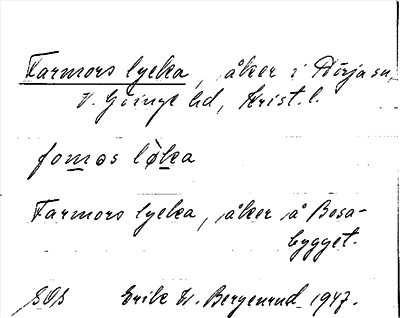 Farmors lycka, åker i Nörja sn,
V. Göinge hd, Krist. l.
fomas lòka
Farmors lycka, åker å Bosa-
bygget.
SOS Erik W. Bergenrud 1947.